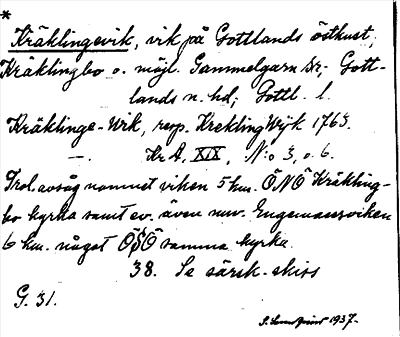 *
Kräklingevik, vik på Gottlands östkust,
Kräklingbo o. möjl. Gammelgarn sr, Gott-
lands n. hd, Gottl. l.
Kräklinge-Wik, resp. Krekling Wijk 1763.
—. Kr A. XIX, N:o 3, o. 6.
Trol. avsåg namnet viken 5 km. ÖNÖ Kräkling-
bo kyrka samt ev. även nuv. Engmansviken
6 km. något ÖSÖ samma kyrka.
38. Se särsk. skiss
G. 31.
1937.